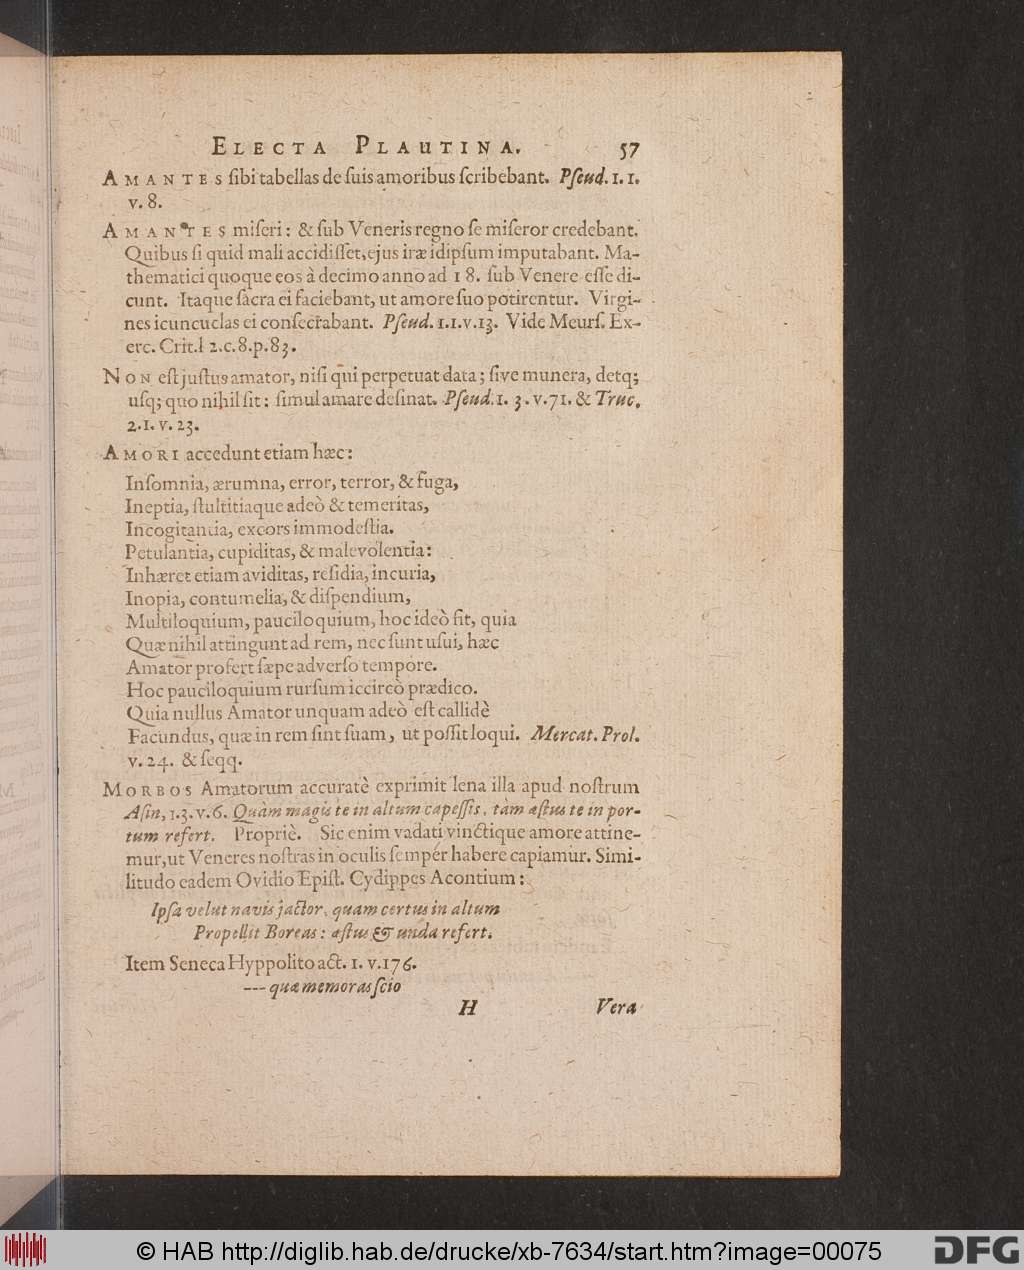 ELECTA PLAUTINA. 57
AMANTES ſibi tabellas de ſuis amoribus ſcribebant. Pſeud. 1. 1.
v. 8.
AMANTES miſeri: & ſub Veneris regno ſe miſeror credebant.
Quibus ſi quid mali accidiſſet, ejus iræ idipſum imputabant. Ma-
thematici quoque eos à decimo anno ad 18. ſub Venere eſſe di-
cunt. Itaque ſacra ei faciebant, ut amore ſuo potirentur. Virgi-
nes icuncuclas ei conſecrabant. Pſeud. 1.1.v.13. Vide Meurſ. Ex-
erc. Crit.l 2.c.8.p.83.
NON eſt juſtus amator, niſi qui perpetuat data; ſive munera, detq;
uſq; quo nihil ſit: ſimul amare deſinat. Pſeud. 1. 3. v.71. & Truc.
2.1. v. 23.
AMORI accedunt etiam hæc:
Inſomnia, ærumna, error, terror, & fuga,
Ineptia, ſtultitiaque adeò & temeritas,
Incogitantia, excors immodeſtia.
Petulantia, cupiditas, & malevolentia:
Inhæret etiam aviditas, reſidia, incuria,
Inopia, contumelia, & diſpendium,
Multiloquium, pauciloquium, hoc ideò fit, quia
Quæ nihil attingunt ad rem, nec ſunt uſui, hæc
Amator profert ſæpe adverſo tempore.
Hoc pauciloquium rurſum iccircò prædico.
Quia nullus Amator unquam adeò eſt callidè
Facundus, quæ in rem ſint ſuam, ut poſſit loqui. Mercat. Prol.
v. 24. & ſeqq.
MORBOS Amatorum accuratè exprimit lena illa apud noſtrum
Aſin, 1.3. v. 6. Quàm magis te in altum capeſſis, tàm æſtus te in por-
tum refert. Propriè. Sic enim vadati vinctique amore attine-
mur, ut Veneres noſtras in oculis ſemper habere capiamur. Simi-
litudo eadem Ovidio Epiſt. Cydippes Acontium:
Ipſa velut navis jactor, quam certus in altum
Propellit Boreas: æſtus & unda refert.
Item Seneca Hyppolito act. 1. v.176.
--- quæ memoras ſcio
H Vera
© HAB http://diglib.hab.de/drucke/xb-7634/start.htm?image=00075
DFG